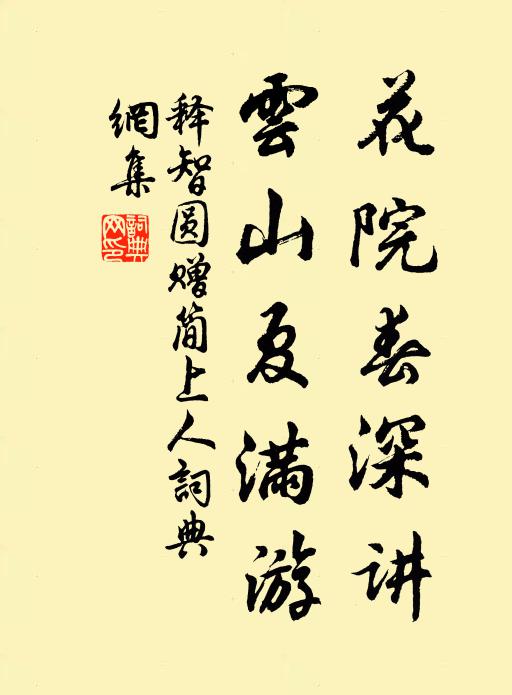 花院春深讲
雲山夏满游
释智圆赠简上人詞典
網集
詞典
网印